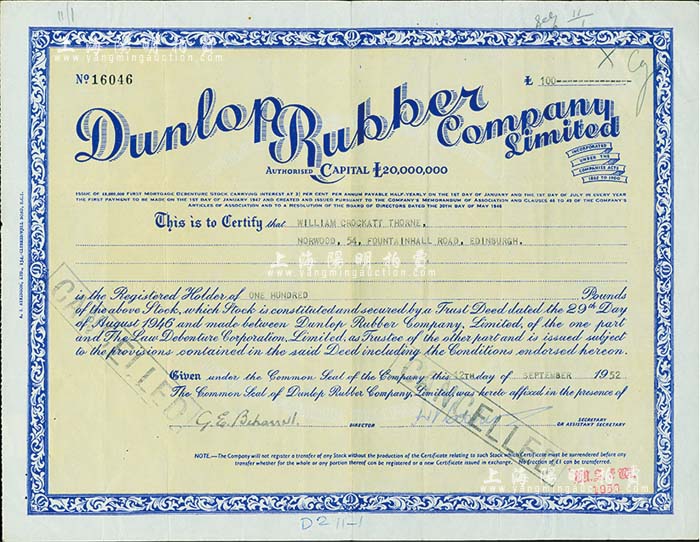 11/1
11/1
上海陽明拍賣
www.yangmingauction.com
Nº 16046
£ 100
X Cg
Dunlop Rubber Company Limited
AUTHORISED CAPITAL £20,000,000
INCORPORATED UNDER THE COMPANIES ACTS 1862 TO 1900
ISSUE OF £8,000,000 FIRST MORTGAGE DEBENTURE STOCK CARRYING INTEREST AT 3½ PER CENT PER ANNUM PAYABLE HALF-YEARLY ON THE 1ST DAY OF JANUARY AND THE 1ST DAY OF JULY IN EVERY YEAR
THE FIRST PAYMENT TO BE MADE ON THE 1ST DAY OF JANUARY 1947 AND CREATED AND ISSUED PURSUANT TO THE COMPANY'S MEMORANDUM OF ASSOCIATION AND CLAUSES 48 TO 49 OF THE COMPANY'S
ARTICLES OF ASSOCIATION AND TO A RESOLUTION OF THE BOARD OF DIRECTORS DATED THE 30TH DAY OF MAY 1946
This is to Certify that WILLIAM CROCKATT THORNE,
NORWOOD, 54, FOUNTAINHALL ROAD, EDINBURGH.
上海陽明拍賣
www.yangmingauction.com
is the Registered Holder of ONE HUNDRED Pounds
of the above Stock, which Stock is constituted and secured by a Trust Deed dated the 29th Day
of August 1946 and made between Dunlop Rubber Company, Limited, of the one part
and The Law Debenture Corporation, Limited, as Trustee of the other part and is issued subject
to the provisions contained in the said Deed including the Conditions endorsed hereon.
CANCELLED
CANCELLED
Given under the Common Seal of the Company this 12TH day of SEPTEMBER 1952
The Common Seal of Dunlop Rubber Company, Limited, was hereto affixed in the presence of
G.E. Beharrell. DIRECTOR
SECRETARY
OR ASSISTANT SECRETARY
NOTE.—The Company will not register a transfer of any Stock without the production of the Certificate relating to such Stock which Certificate must be surrendered before any
transfer whether for the whole or any portion thereof can be registered or a new Certificate issued in exchange. No fraction of £1 can be transferred.
上海陽明拍賣
www.yangmingauction.com
D2 11-1